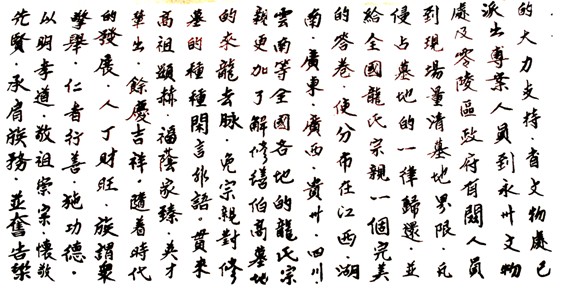 的大力支持．省文物處已
派出專案人員到永州文物
處及零陵區政府有關人員
到現場量清墓地界限．凡
侵占墓地的一律歸還．並
給全國龍氏宗親一個完美
的答卷．使分布在江西．湖
南．廣東．廣西．貴州．四川．
雲南等全國各地的龍氏宗
親更加了解修繕伯高墓地
的來龍去脉．免宗親對修
墓的種種閑言非語．貫来
高祖顯赫．福蔭家臻．英才
輩出．餘慶吉祥．隨着時代
的發展．人丁財旺．族謂衆
擎舉．仁者行善施功德．
以明孝道．敬祖崇宗．懷敬
先賢．承肩族務．並奮告